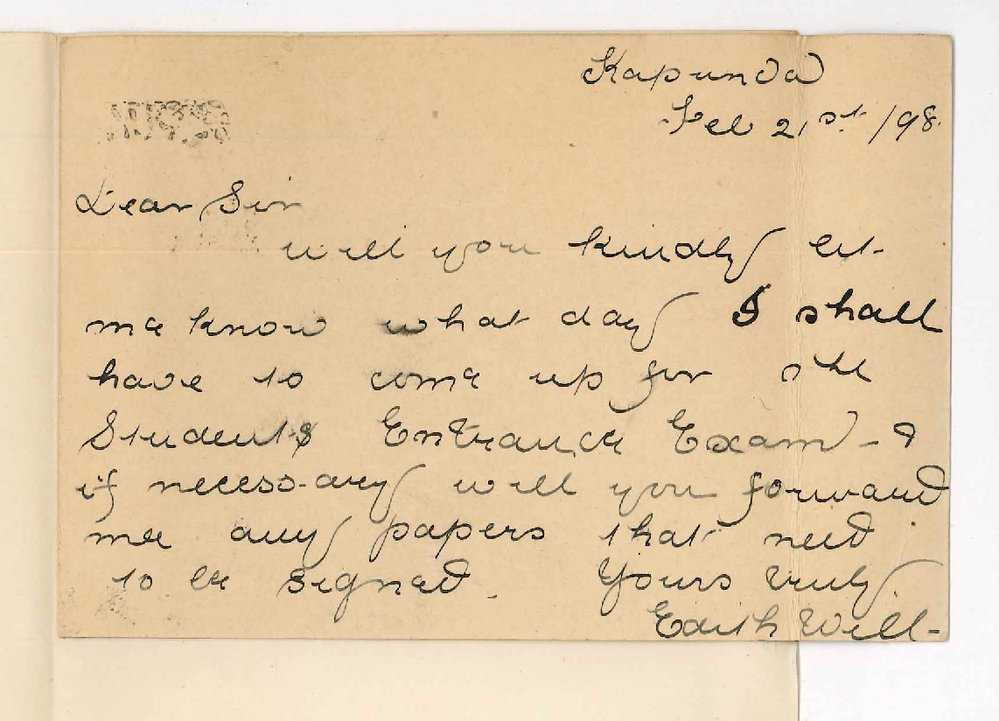 Kapunda
Feb 21st /98.
Dear Sir
will you kindly let
me know what day I shall
have to come up for the
Students Entrance Exam - &
if necessary will you forward
me any papers that need
to be signed. Yours truly
Edith Will-